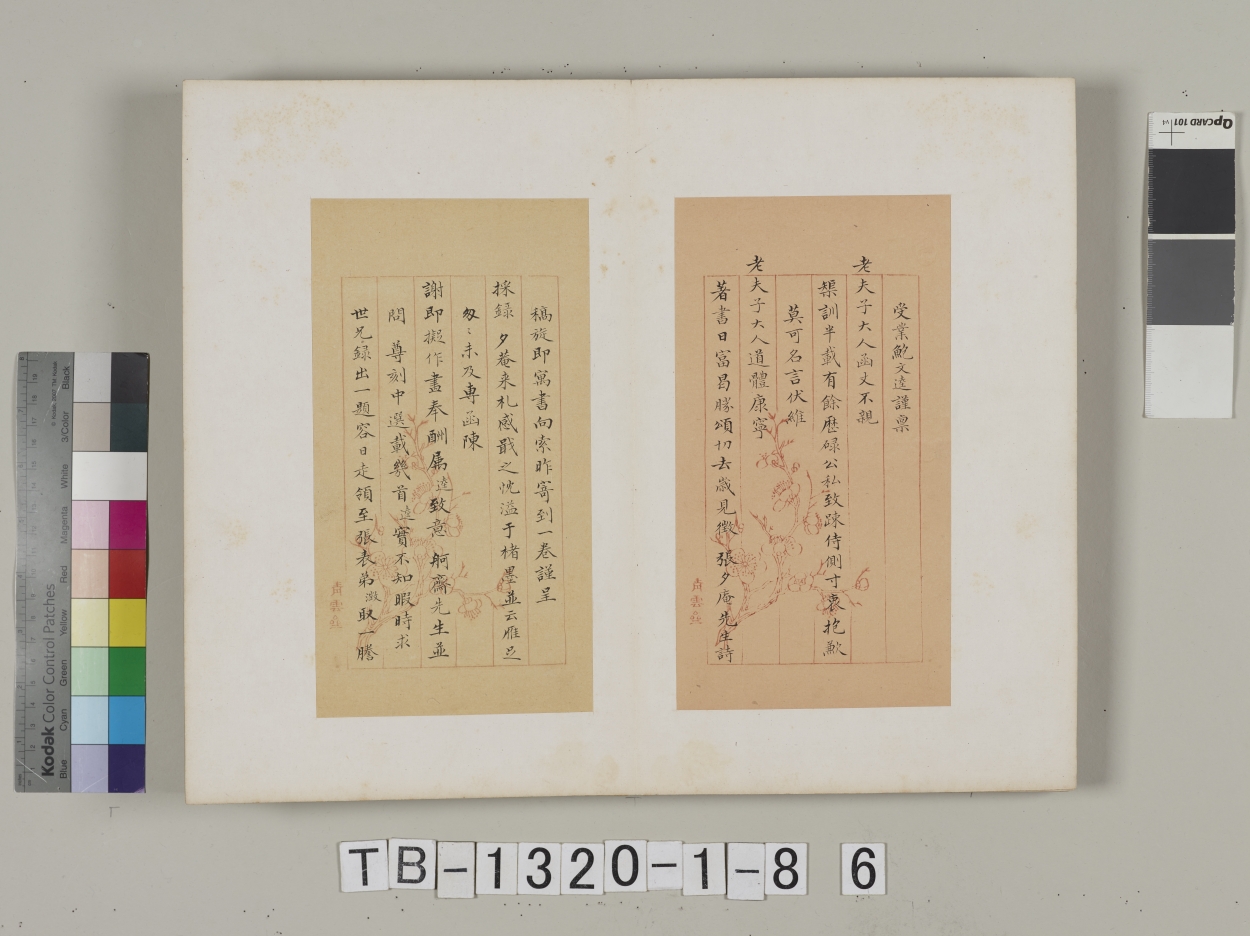 受業鮑文逵謹稟
老夫子大人函丈不親
榘訓半載有餘歷碌公私致疎侍側寸衷抱歉
莫可名言伏維
老夫子大人道體康寧
著書日富曷勝頌切去歲見徵 張夕庵先生詩
稿旋即寓書向索昨寄到一卷謹呈
採錄 夕菴来札感戢之忱溢于楮墨並云雁足
匆〻未及專函陳
謝即擬作畫奉酬属逵致意 舸齋先生並
問 尊刻中選載幾首逵實不知暇時求
世兄録出一題容日走領至張表弟澂取一謄
青雲
青雲
Kodak Color Control Patches
© Kodak, 2007, TM: Kodak
Blue Cyan Green Yellow Red Magenta White 3/Color Black
QPCARD 101
TB-1320-1-8 6